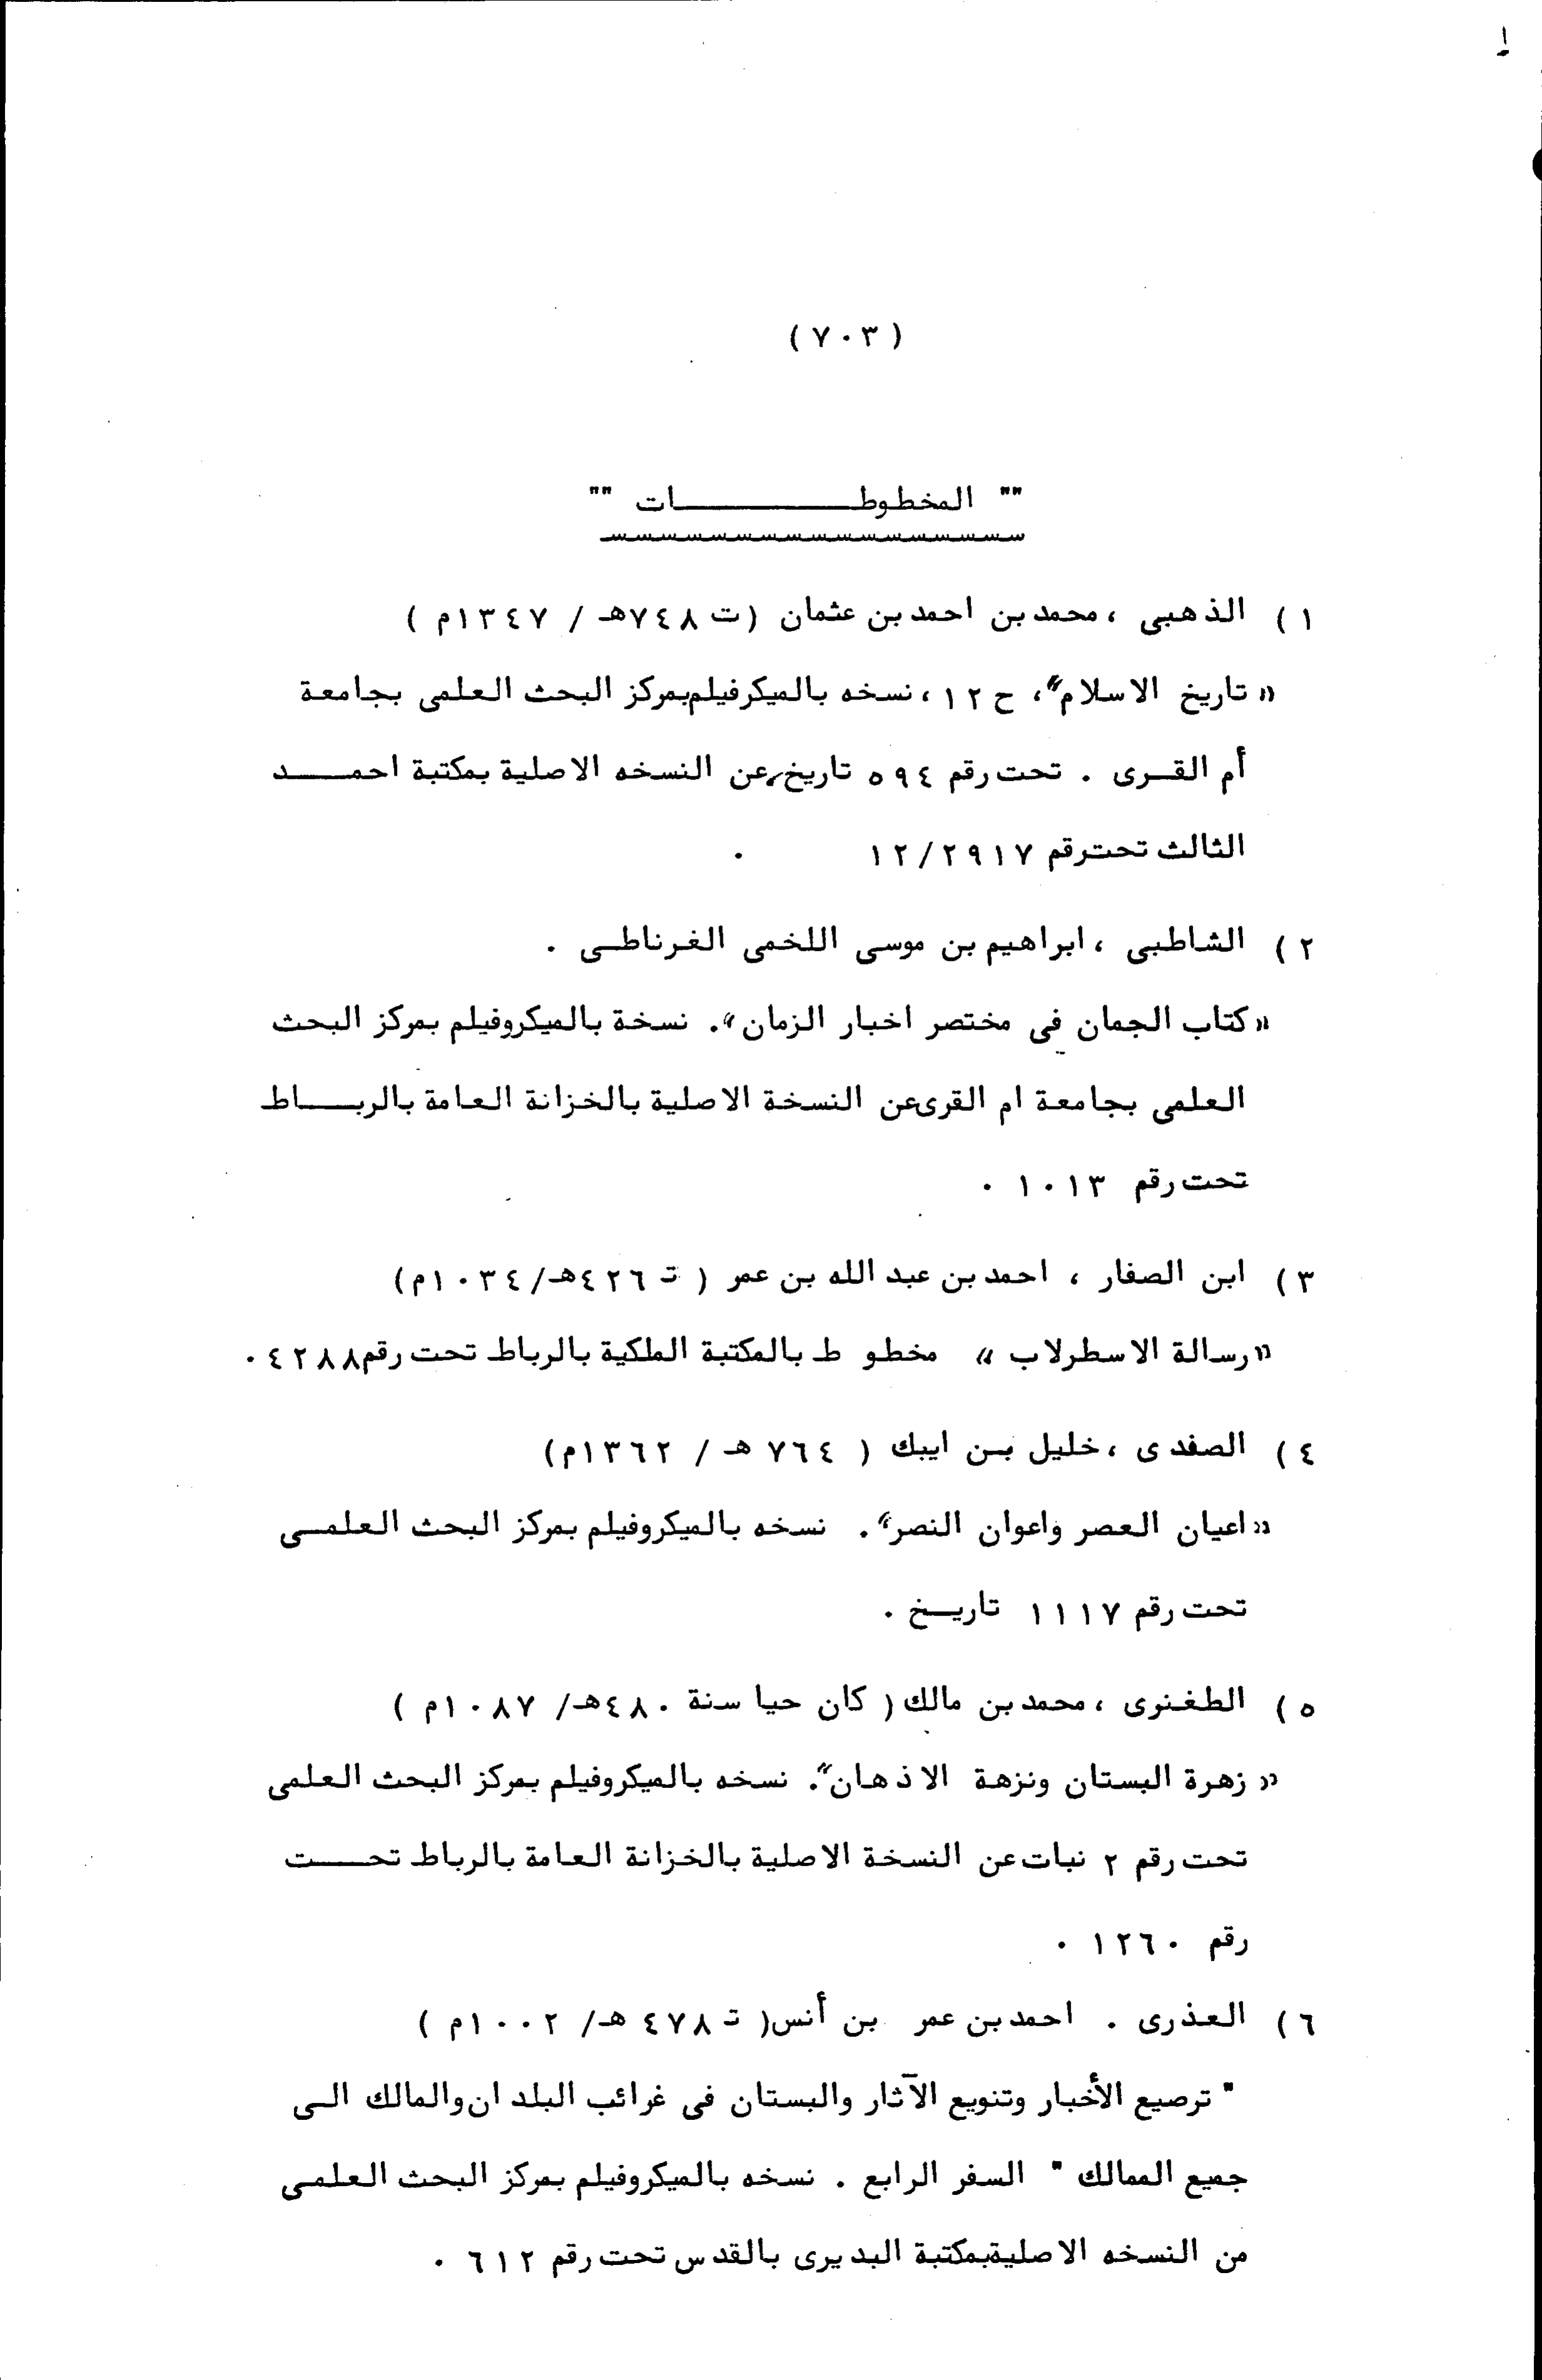 ( ٧٠٣ )
"" المخطوطـــــــــات ""
١ ) الذهبى ، محمد بن احمد بن عثمان (ت ٧٤٨هـ / ١٣٤٧م )
« تاريخ الاسلام »، ح ١٢ ، نسخه بالميكرفيلم بمركز البحث العلمى بجامعة
أم القــرى . تحت رقم ٥٩٤ تاريخ، عن النسخه الاصلية بمكتبة احمــــد
الثالث تحت رقم ١٢/٢٩١٧ .
٢ ) الشاطبى ، ابراهيم بن موسى اللخمى الغرناطــى .
« كتاب الجمان فى مختصر اخبار الزمان » . نسخة بالميكروفيلم بمركز البحث
العلمى بجامعة ام القرى عن النسخة الاصلية بالخزانة العامة بالربـــاط
تحت رقم ١٠١٣ .
٣ ) ابن الصفار ، احمد بن عبد الله بن عمر ( تـ ٤٢٦هـ/ ١٠٣٤م)
« رسالة الاسطرلاب » مخطوط بالمكتبة الملكية بالرباط تحت رقم ٤٢٨٨ .
٤ ) الصفدى ، خليل بـن ايبك ( ٧٦٤ هـ / ١٣٦٢م)
« اعيان العصر واعوان النصر » . نسخه بالميكروفيلم بمركز البحث العلمــى
تحت رقم ١١١٧ تاريــخ .
٥ ) الطغنرى ، محمد بن مالك ( كان حيا سنة ٤٨٠هـ/ ١٠٨٧م )
« زهرة البستان ونزهة الاذهان » . نسخه بالميكروفيلم بمركز البحث العلمى
تحت رقم ٢ نبات عن النسخة الاصلية بالخزانة العامة بالرباط تحـــت
رقم ١٢٦٠ .
٦ ) العذرى . احمد بن عمر بن أنس( تـ ٤٧٨ هـ/ ١٠٠٢م )
" ترصيع الأخبار وتنويع الآثار والبستان فى غرائب البلدان والمالك الــى
جميع الممالك " السفر الرابع . نسخه بالميكروفيلم بمركز البحث العلمــى
من النسخه الاصلية بمكتبة البديرى بالقدس تحت رقم ٦١٢ .